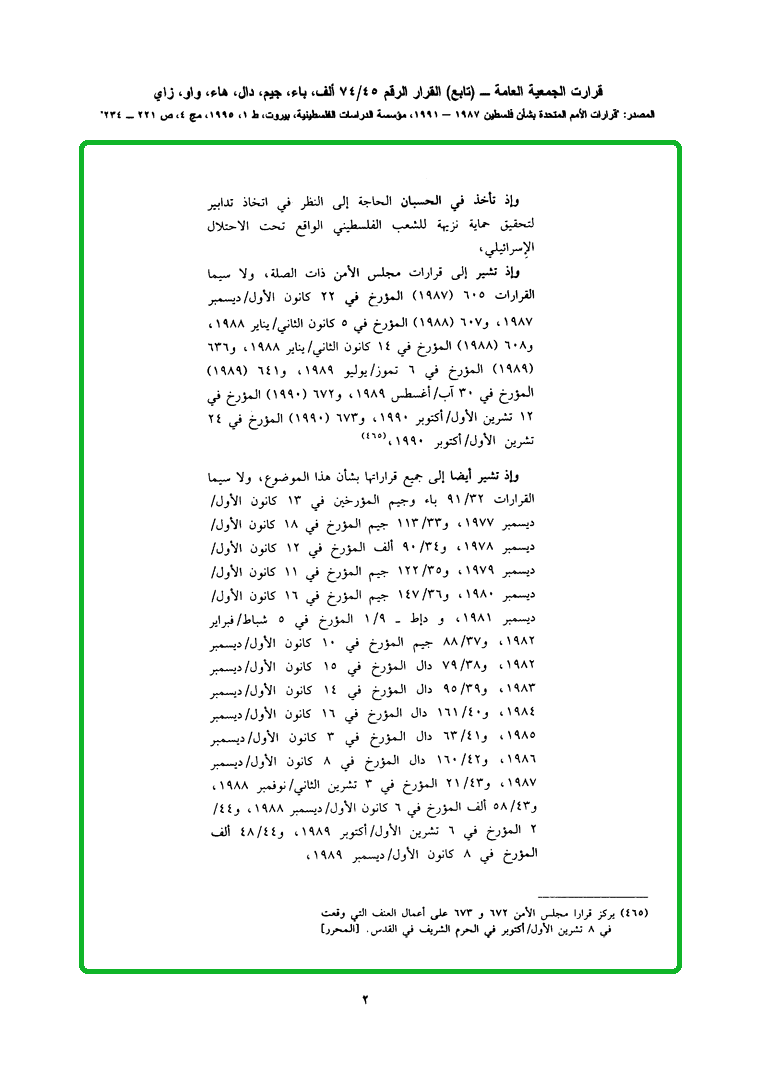 قرارت الجمعية العامة ــ (تابع) القرار الرقم ٧٤/٤٥ ألف، باء، جيم، دال، هاء، واو، زاي
المصدر: "قرارات الأمم المتحدة بشأن فلسطين ١٩٨٧ – ١٩٩١، مؤسسة الدراسات الفلسطينية، بيروت، ط ١، ١٩٩٥، مج ٤، ص ٢٢١ ــ ٢٣٤"
وإذ تأخذ في الحسبان الحاجة إلى النظر في اتخاذ تدابير
لتحقيق حماية نزيهة للشعب الفلسطيني الواقع تحت الاحتلال
الإسرائيلي،
وإذ تشير إلى قرارات مجلس الأمن ذات الصلة، ولا سيما
القرارات ٦٠٥ (١٩٨٧) المؤرخ في ٢٢ كانون الأول/ديسمبر
١٩٨٧، و٦٠٧ (١٩٨٨) المؤرخ في ٥ كانون الثاني/يناير ١٩٨٨،
و٦٠٨ (١٩٨٨) المؤرخ في ١٤ كانون الثاني/يناير ١٩٨٨، و٦٣٦
(١٩٨٩) المؤرخ في ٦ تموز/يوليو ١٩٨٩، و٦٤١ (١٩٨٩)
المؤرخ في ٣٠ آب/أغسطس ١٩٨٩، و٦٧٢ (١٩٩٠) المؤرخ في
١٢ تشرين الأول/أكتوبر ١٩٩٠، و٦٧٣ (١٩٩٠) المؤرخ في ٢٤
تشرين الأول/أكتوبر ١٩٩٠،(٤٦٥)
وإذ تشير أيضا إلى جميع قراراتها بشأن هذا الموضوع، ولا سيما
القرارات ٩١/٣٢ باء وجيم المؤرخين في ١٣ كانون الأول/
ديسمبر ١٩٧٧، و١١٣/٣٣ جيم المؤرخ في ١٨ كانون الأول/
ديسمبر ١٩٧٨، و٩٠/٣٤ ألف المؤرخ في ١٢ كانون الأول/
ديسمبر ١٩٧٩، و١٢٢/٣٥ جيم المؤرخ في ١١ كانون الأول/
ديسمبر ١٩٨٠، و١٤٧/٣٦ جيم المؤرخ في ١٦ كانون الأول/
ديسمبر ١٩٨١، و دإط ـ ١/٩ المؤرخ في ٥ شباط/فبراير
١٩٨٢، و٨٨/٣٧ جيم المؤرخ في ١٠ كانون الأول/ديسمبر
١٩٨٢، و٧٩/٣٨ دال المؤرخ في ١٥ كانون الأول/ديسمبر
١٩٨٣، و٩٥/٣٩ دال المؤرخ في ١٤ كانون الأول/ديسمبر
١٩٨٤، و١٦١/٤٠ دال المؤرخ في ١٦ كانون الأول/ديسمبر
١٩٨٥، و٦٣/٤١ دال المؤرخ في ٣ كانون الأول/ديسمبر
١٩٨٦، و١٦٠/٤٢ دال المؤرخ في ٨ كانون الأول/ديسمبر
١٩٨٧، و٢١/٤٣ المؤرخ في ٣ تشرين الثاني/نوفمبر ١٩٨٨،
و٥٨/٤٣ ألف المؤرخ في ٦ كانون الأول/ديسمبر ١٩٨٨، و٤٤/
٢ المؤرخ في ٦ تشرين الأول/أكتوبر ١٩٨٩، و٤٨/٤٤ ألف
المؤرخ في ٨ كانون الأول/ديسمبر ١٩٨٩،
(٤٦٥) يركز قرارا مجلس الأمن ٦٧٢ و ٦٧٣ على أعمال العنف التي وقعت
في ٨ تشرين الأول/أكتوبر في الحرم الشريف في القدس. [المحرر]
٢